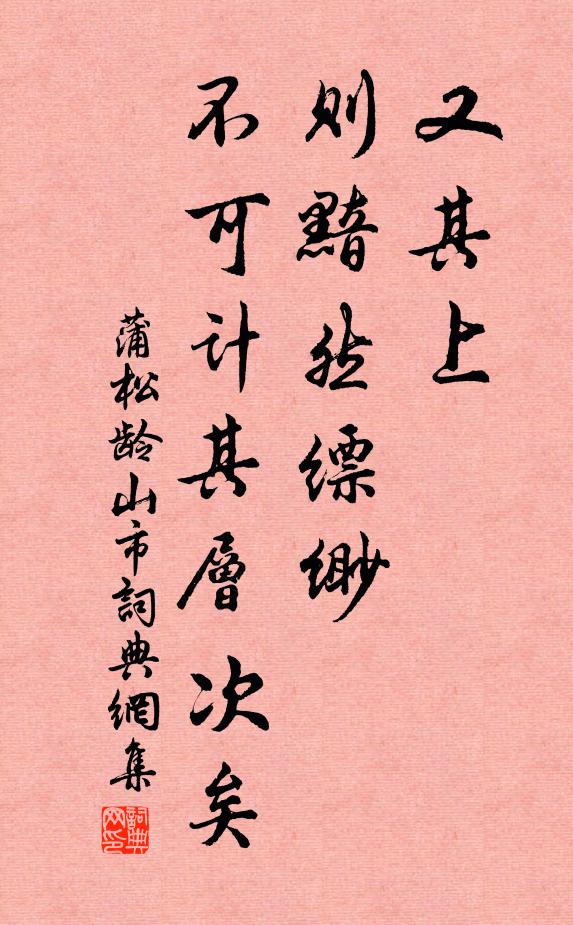 又其上
则黯然缥
缈
不可计其層次矣
蒲松龄山市詞典網集
詞典
网印